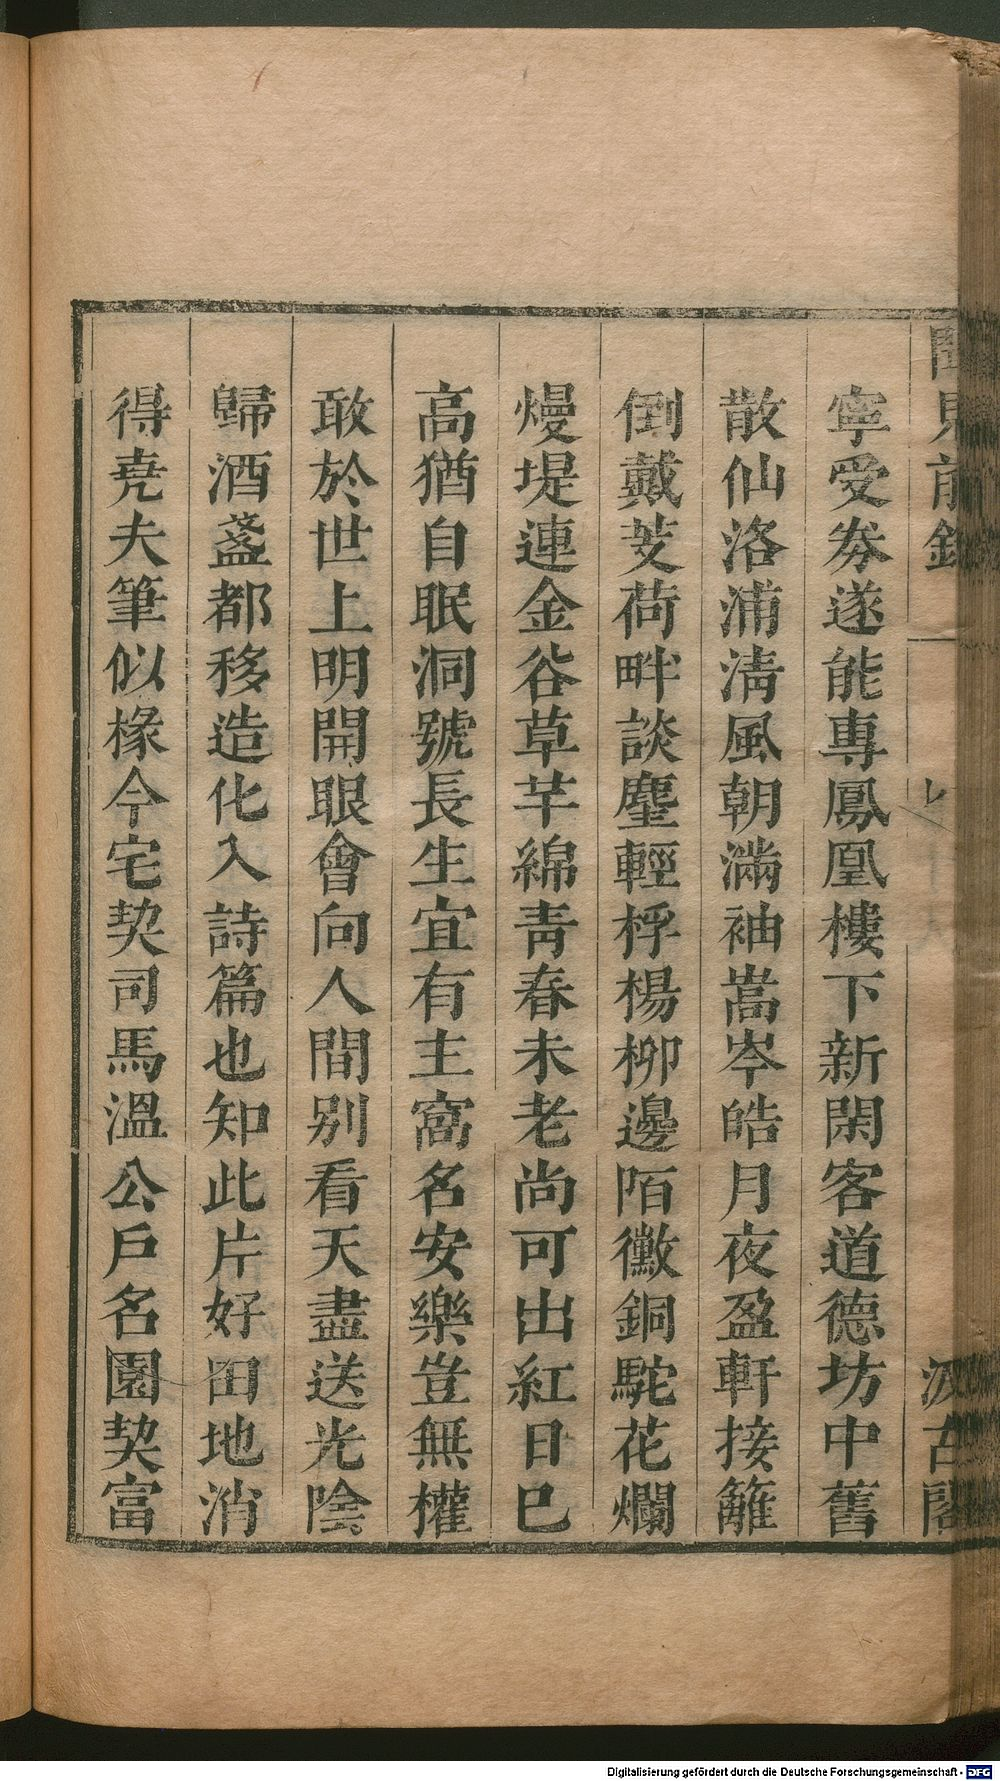 聞見前錄
汲古閣
寧受券遂能專鳳凰樓下新閑客道德坊中舊
散仙洛浦淸風朝滿袖嵩岑皓月夜盈軒接籬
倒戴芰荷畔談麈輕桴楊柳邊陌黴銅駝花爛
熳堤連金谷草芊綿靑春未老尚可出紅日已
高猶自眠洞號長生宜有主窩名安樂豈無權
敢於世上明開眼會向人間別看天盡送光陰
歸酒盞都移造化入詩篇也知此片好田地消
得堯夫筆似椽今宅契司馬溫公戶名園契富
Digitalisierung gefördert durch die Deutsche Forschungsgemeinschaft - DFG